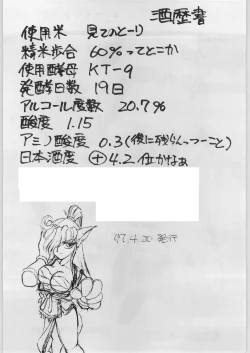 酒歴書
使用米 見てのとーり
精米歩合 60%ってとこか
使用酵母 KT-9
発酵日数 19日
アルコール度数 20.7%
酸度 1.15
アミノ酸度 0.3(後に残らんっつーこと)
日本酒度 ⊕4.2位かなぁ
'97.4.20 発行